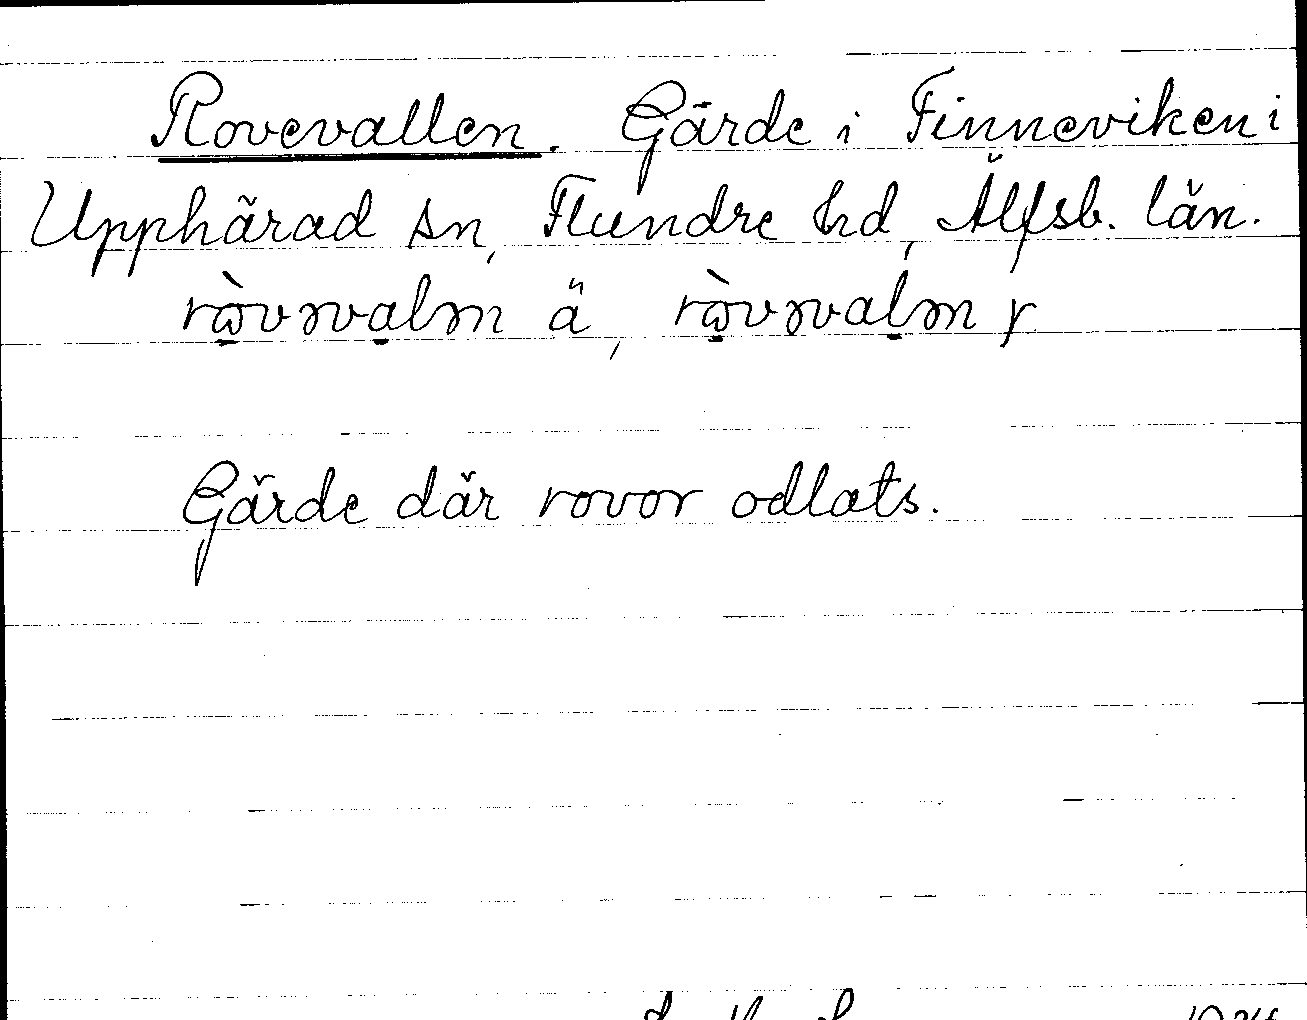 Rovevallen. Gärde i Finneviken i
Upphärad sn, Flundre hd, Älfsb. län.
rὼvəvalən ä, rὼvəvalən y
Gärde där rovor odlats.